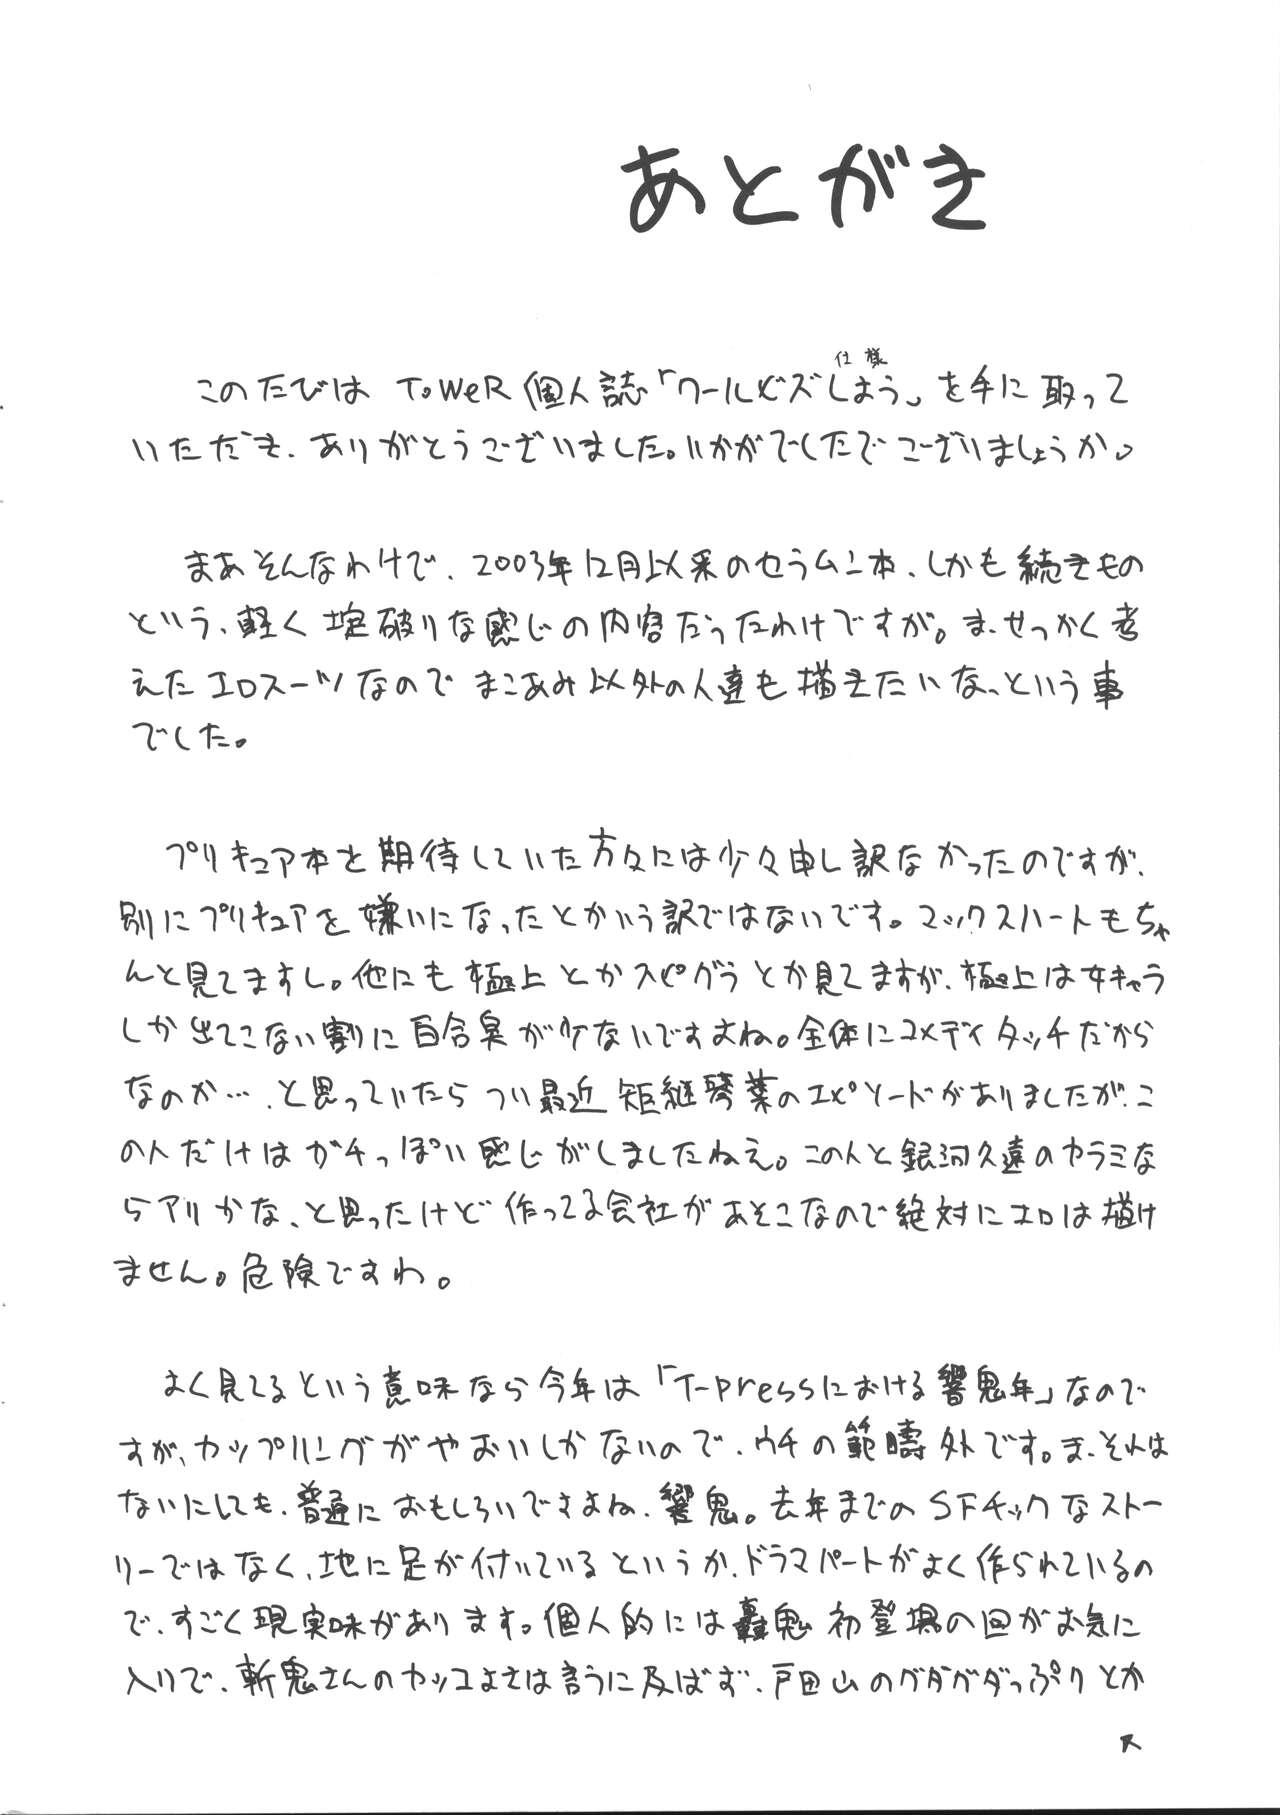 あとがき
このたびは ToWeR 個人誌「ワールドズしよう」を手に取って
仕様
いただき、ありがとうございました。いかがでしたでございましょうか。
まあそんなわけで、2003年12月以来のセラムン本、しかも続きもの
という、軽く掟破りな感じの内容だったわけですが。ま、せっかく考
えたエロスーツなのでまこあみ以外の人達も描きたいなっという事
でした。
プリキュア本を期待していた方々には少々申し訳なかったのですが、
別にプリキュアを嫌いになったとかいう訳ではないです。マックスハートもちゃ
んと見てますし。他にも極上とかスピグラとか見てますが、極上は女キャラ
しか出てこない割に百合臭が少ないですよね。全体にコメディタッチだから
なのか…、と思っていたらつい最近矩継琴葉のエピソードがありましたが、こ
の人だけはガチっぽい感じがしましたねえ。この人と銀河久遠のカラミな
らアリかな、と思ったけど作ってる会社があそこなので絶対にエロは描け
ません。危険ですわ。
よく見てるという意味なら今年は「T-pressにおける響鬼年」なので
すが、カップリングがやおいしかないので、ウチの範疇外です。ま、それは
ないにしても、普通におもしろいですよね、響鬼。去年までのSFチックなストー
リーではなく、地に足が付いているというか、ドラマパートがよく作られているの
で、すごく現実味があります。個人的には轟鬼初登場の回がお気に
入りで、斬鬼さんのカッコよさは言うに及ばず、戸田山のグダグダっぷりとか